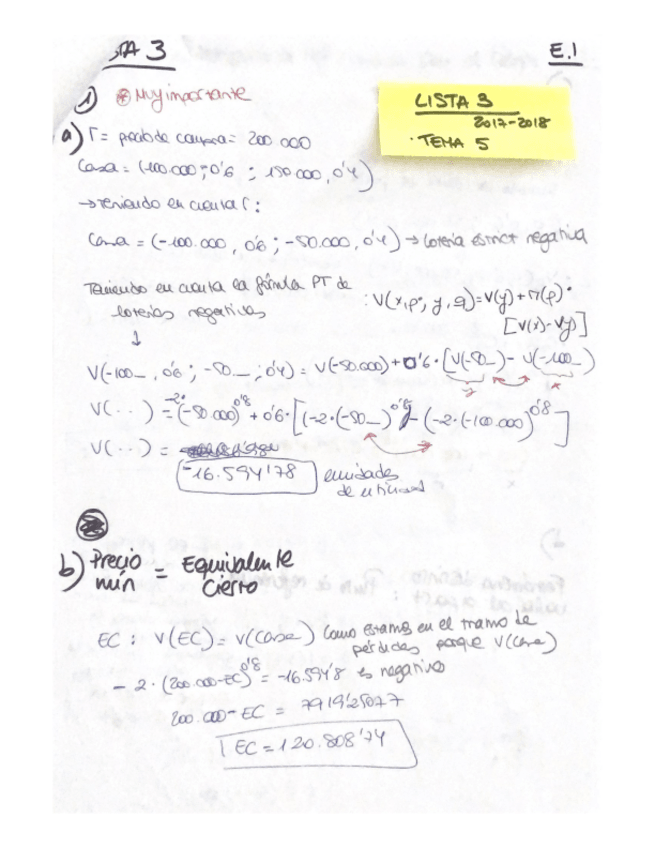 STA 3
E.1
LISTA 3
2017-2018
· TEMA 5
① ⊛ Muy importante
a) Γ = precio de compra = 200.000
Casa = (100.000; 0'6 ; 150.000, 0'4)
→ teniendo en cuenta Γ:
Casa = (-100.000, 0'6 ; -50.000, 0'4) → Lotería estrict negativa
Teniendo en cuenta la fórmula PT de
loterías negativas
: V(x,p; y, q) = V(y) + π(p)·
[V(x)-V(y)]
↓
V(-100_, 0'6 ; -50_ ; 0'4) = V(-50.000) + 0'6 · [V(-50_) - V(-100_)
V(··) = -2·(-50.000)^0'8 + 0'6·[(-2·(-50_)^0'8 - (-2·(-100.000)^0'8]
V(··) =
-16.594'78 unidades
de utilidad
b) Precio
mín = Equivalente
Cierto
EC : V(EC) = V(Casa) Como estamos en el tramo de
pérdidas porque V(Casa)
- 2 · (200.000-EC)^0'8 = -16.594'8 es negativo
200.000 - EC = 79192'5077
EC = 120.808'74